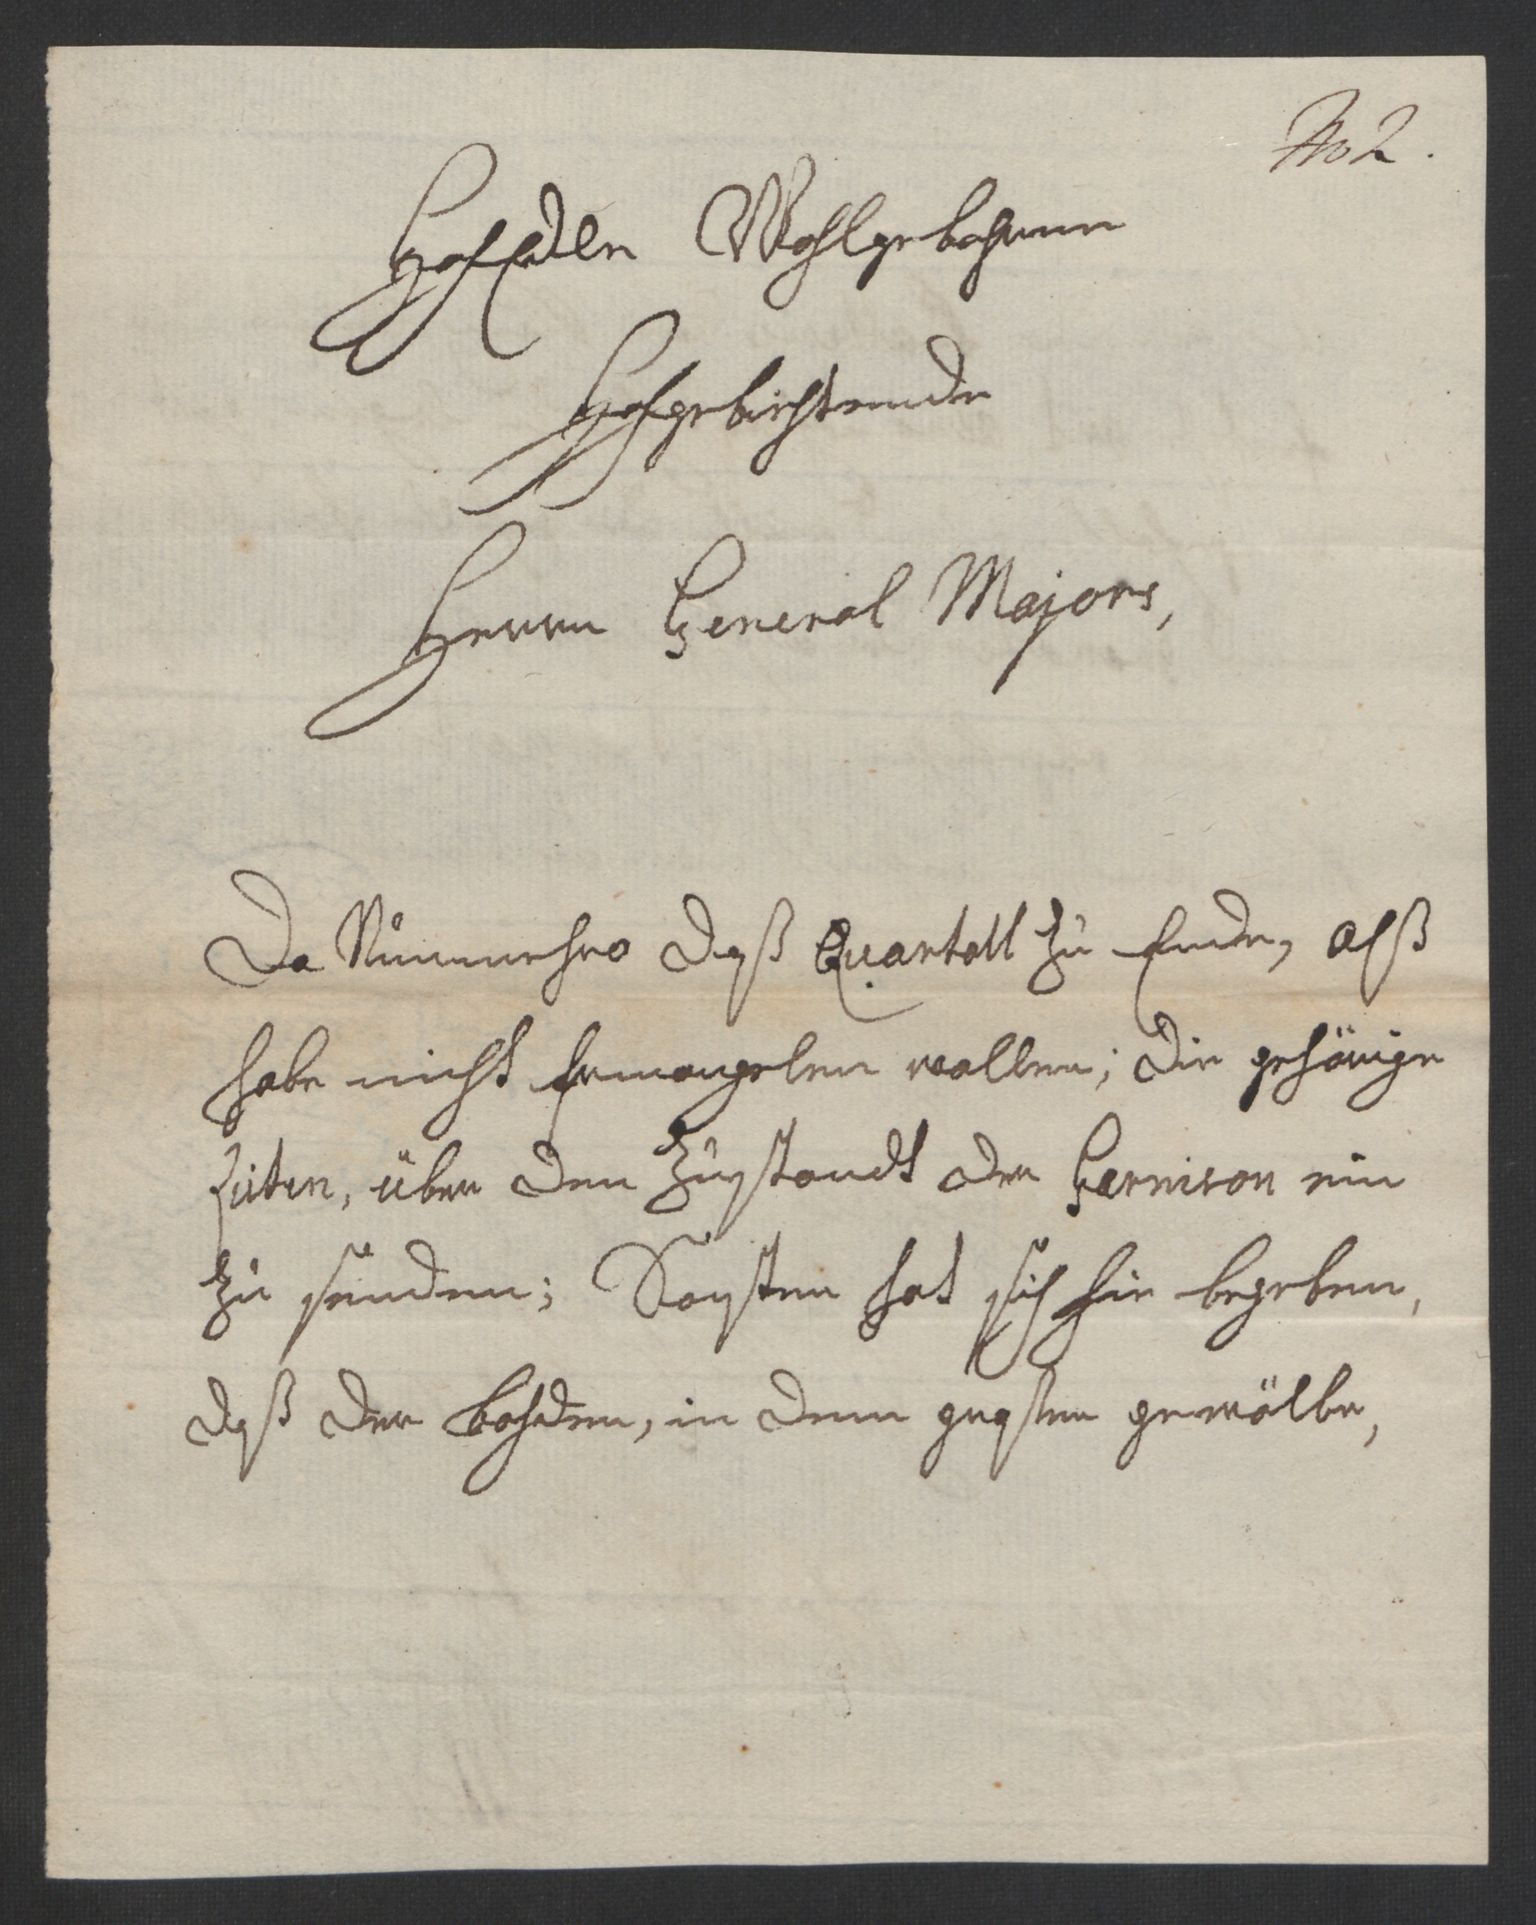 No 2.
HochEdler Wohlgebohrner
Hochgebiehtender
Herrn General Majors,
Da Nunmehro daß Quartall zu Ende, alß
habe nicht Ermangelen wollen; die gehörige
Listen, über den Zustandt der Garnison ein
zu senden; Sonsten hat sich hir begeben,
daß der bohden, in dem gewölbe,